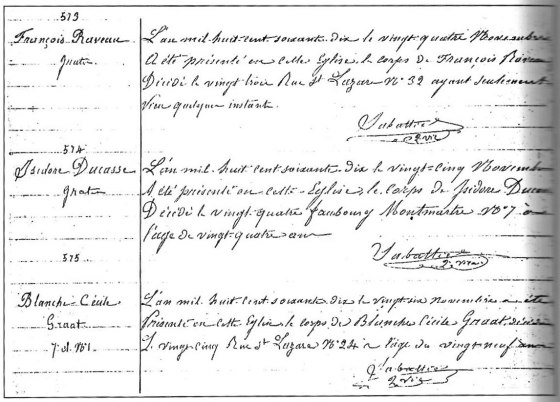 573
François Raveau
gratt
L'an mil-huit-cent soixante-dix le vingt-quatre Novembre
A été présenté en cette Eglise, le corps de François Raveau
Décédé le vingt-trois Rue St Lazare No 32 ayant seulement
vécu quelques instants
Sabattier
2e Vic
574
Isidore Ducasse
gratt
L'an mil-huit cent soixante-dix le vingt-cinq Novembre
A été présenté en cette Eglise, le corps de Isidore Ducasse
Décédé le vingt-quatre faubourg Montmartre No 7 à
l'age de vingt-quatre ans
Sabattier
2e Vicaire
575
Blanche-Cécile
Graat
7e cl.
L'an mil-huit-cent soixante-dix le vingt six novembre a été
Présenté en cette Eglise le corps de Blanche Cécile Graat, décédée
le vingt-cinq Rue St Lazare No 24 à l'age de vingt-neuf ans
Sabattier
2e Vic